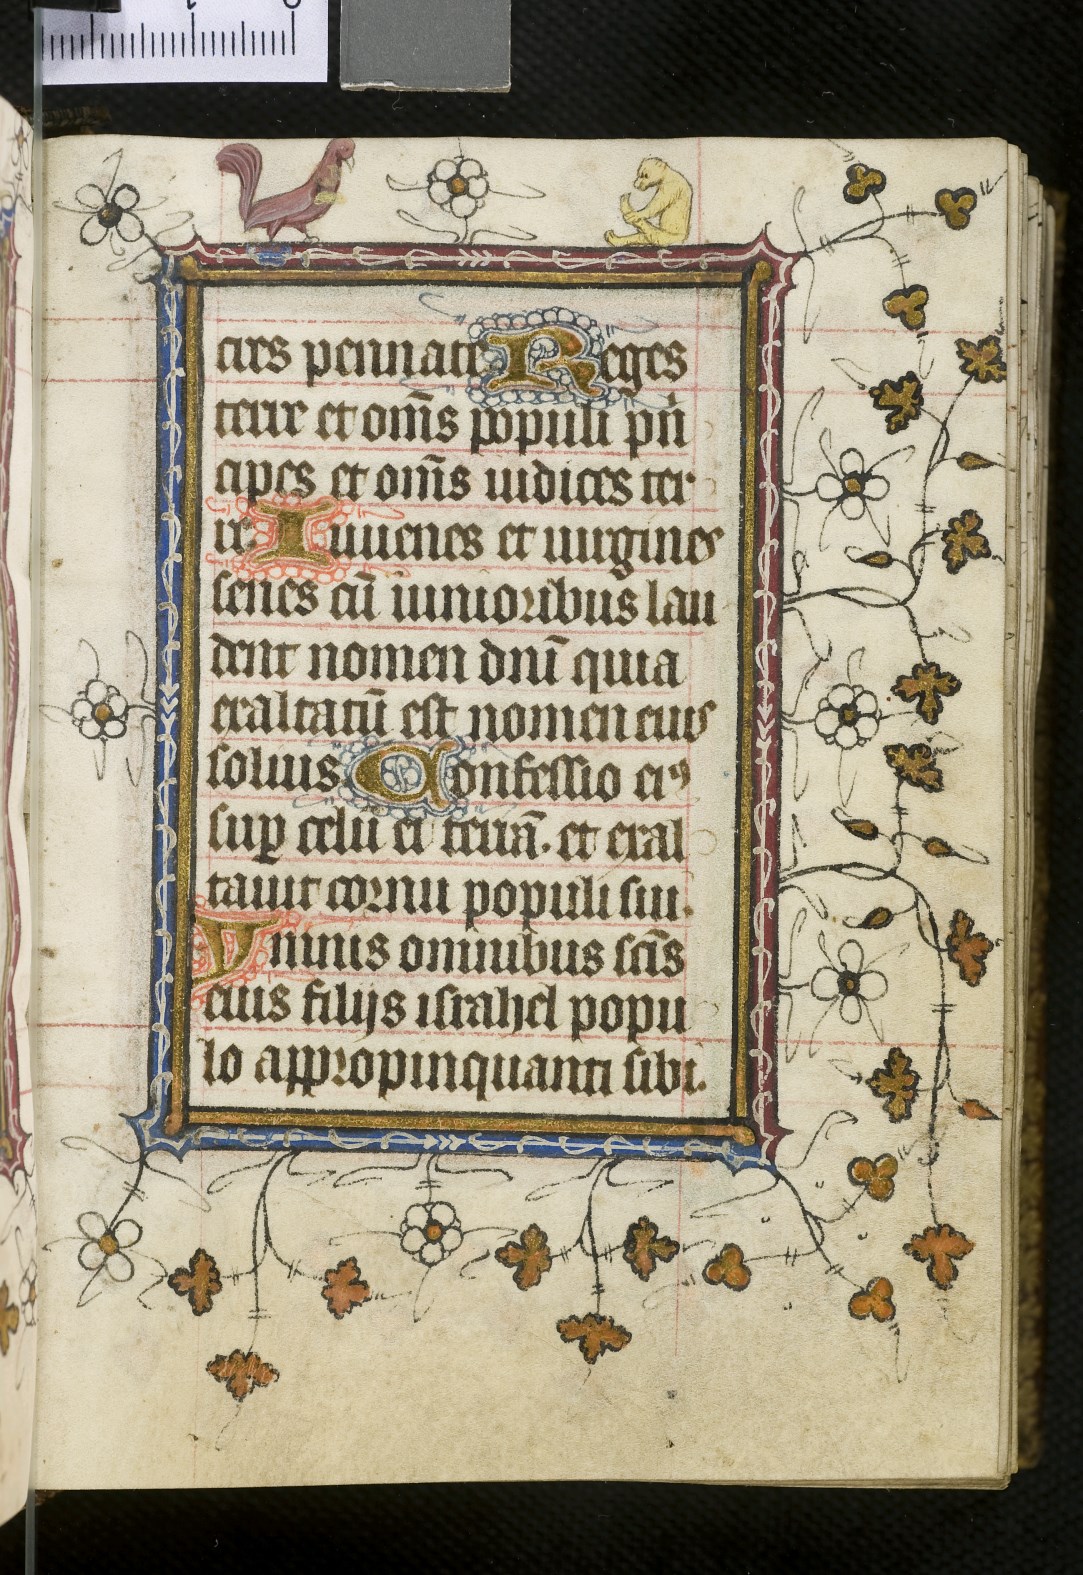 cres pennate Reges
terre et om̄s populi prī
cipes et om̄s iudices ter
re. Iuuenes et uirgines
senes cū iunioribus lau
dent nomen dn̄i quia
exaltatū est nomen eius
solius Confessio eiꝰ
suꝑ celū et terrā. et exal
tauit cornu populi sui.
Ymnus omnibus sc̄is
eius filijs israhel popu
lo appropinquanti sibi.